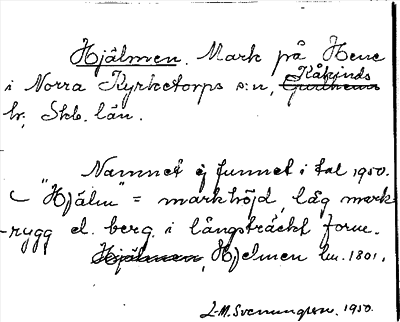 Hjälmen. Mark på Hene
i Norra Kyrketorps s:n, Kåkinds
hr, Skb. län.
Namnet ej funnet i tal 1950.
"Hjälm" = markhöjd, låg mark-
rygg el. berg i långsträckt form.
Hjälmen, Hjelmen lm. 1801.
L-M. Svenungson. 1950.